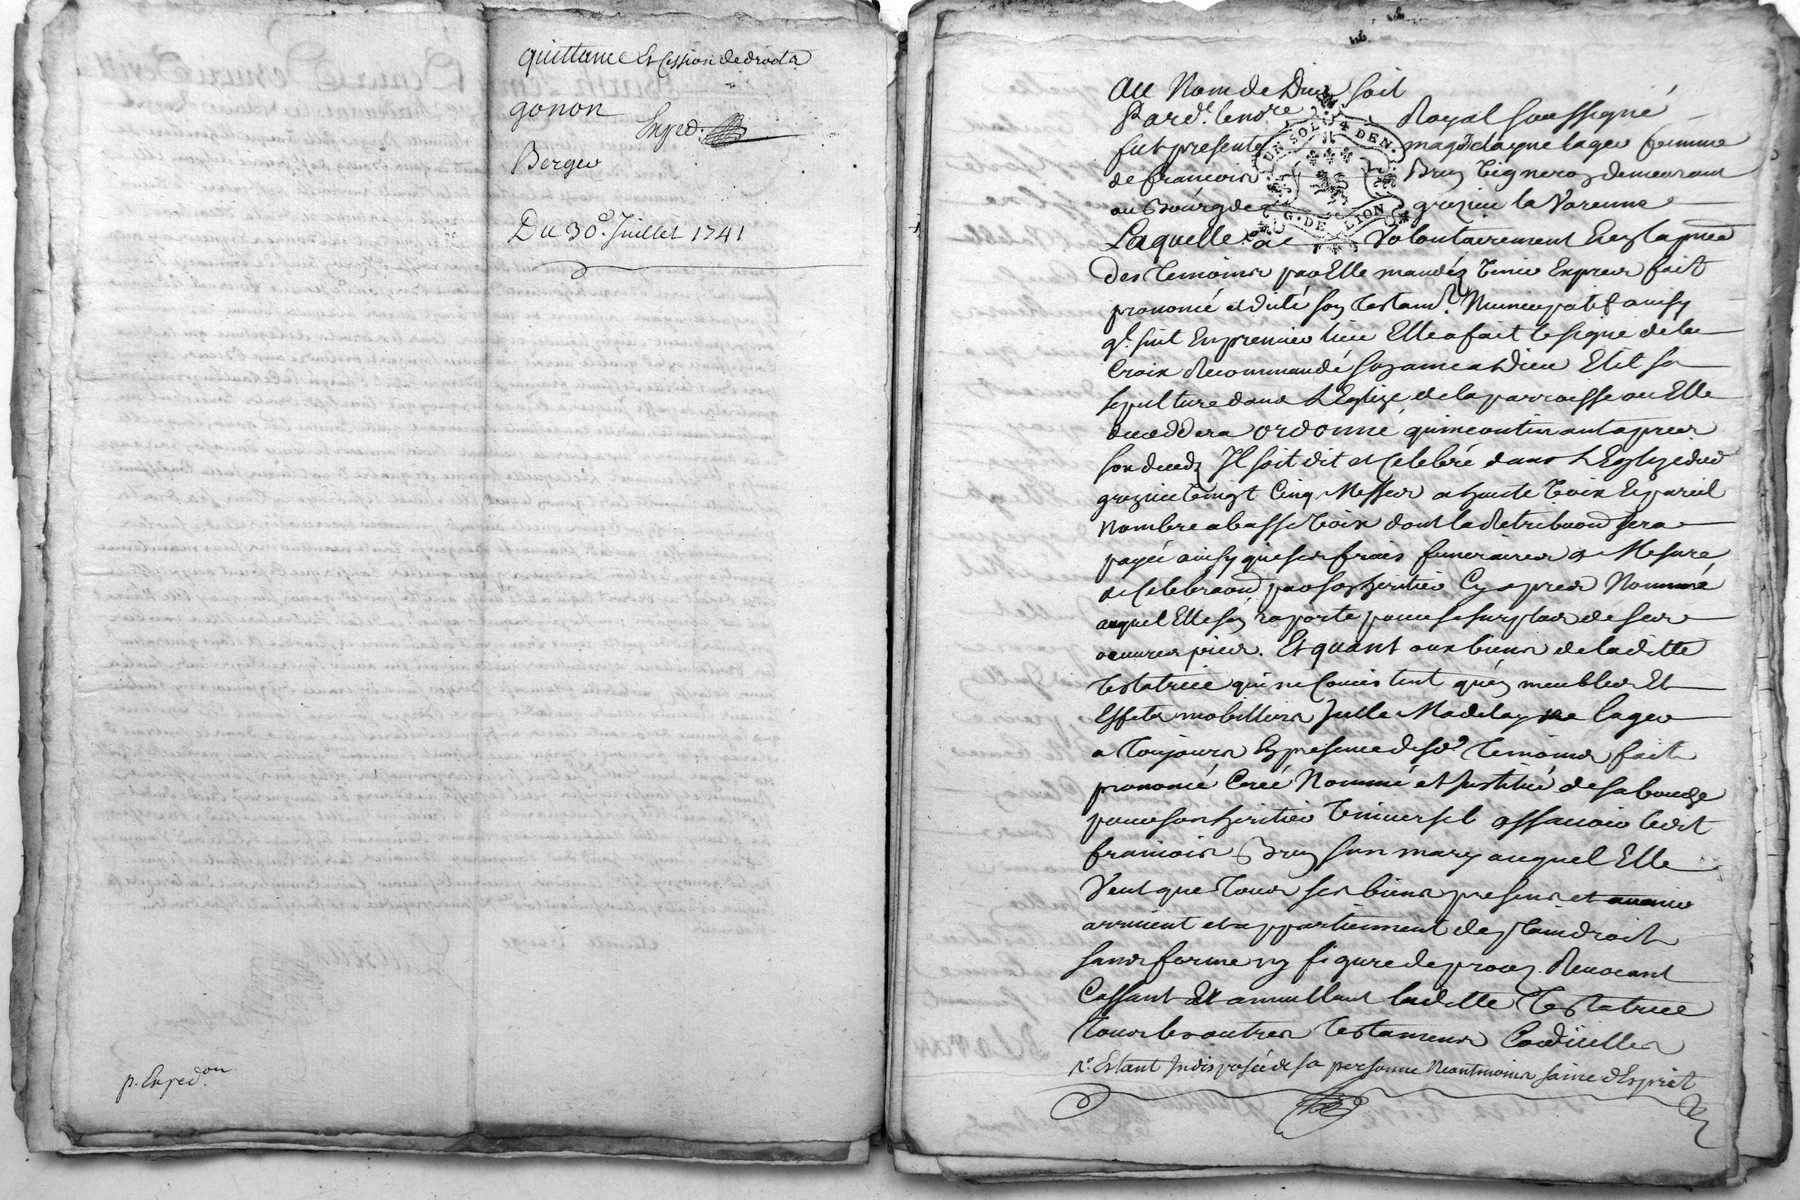 quittance Et Cession de droits
gonon
Exped.
Berger
Du 30e. Juillet 1741
p. Exped.on
Au Nom de Dieu soit
Pard.t le no.re Royal soussigné
fut presente magdelayne lager femme
de francois Bruy Vigneron demeurant
au Bourg de grezieu la Varenne
UN SOL 4 DEN.
G. DE LION
Laquelle a volontairement En la pnce
des temoins par Elle mandés Venir Exprès fait
prononcé et dicté son testam.t Nuncupatif ainsy
q.l suit En premier lieu Elle a fait le signe de la
Croix Recommandé son ame a Dieu Elit sa
sepulture dans L'Eglize de la parroisse ou Elle
deceddera ordonne qu'incontinant apres
son deceds Il soit dit et Celebré dans L'Eglize dud
grezieu Vingt Cinq Messes a haute Voix Et pareil
Nombre a basse Voix dont la Retribuon sera
payée ainsy que ses frais funeraires a Mesure
de Celebraon par son heritier Cy apres Nommé
auquel Elle s'en raporte pour le surplus de ses
oeuvres pies. Et quant aux biens de la ditte
testatrice qui ne Concistent qu'en meubles Et
Effets mobilliers Jcelle Madelayne lager
a toujours En presence desd. temoins fait
prononcé Créé Nommé et Jnstitué de sa bouche
pour son heritier Universel assavoir ledit
francois Bruy son mary auquel Elle
Veut que tous ses biens presens et
arrivent et appartiennent de plain droit
sans forme ny figure de procez Revocant
Cassant Et annullant laditte testatrice
tous les autres testamens Codicilles
Estant Jndisposée de sa personne Neantmoins saine d'Esprit